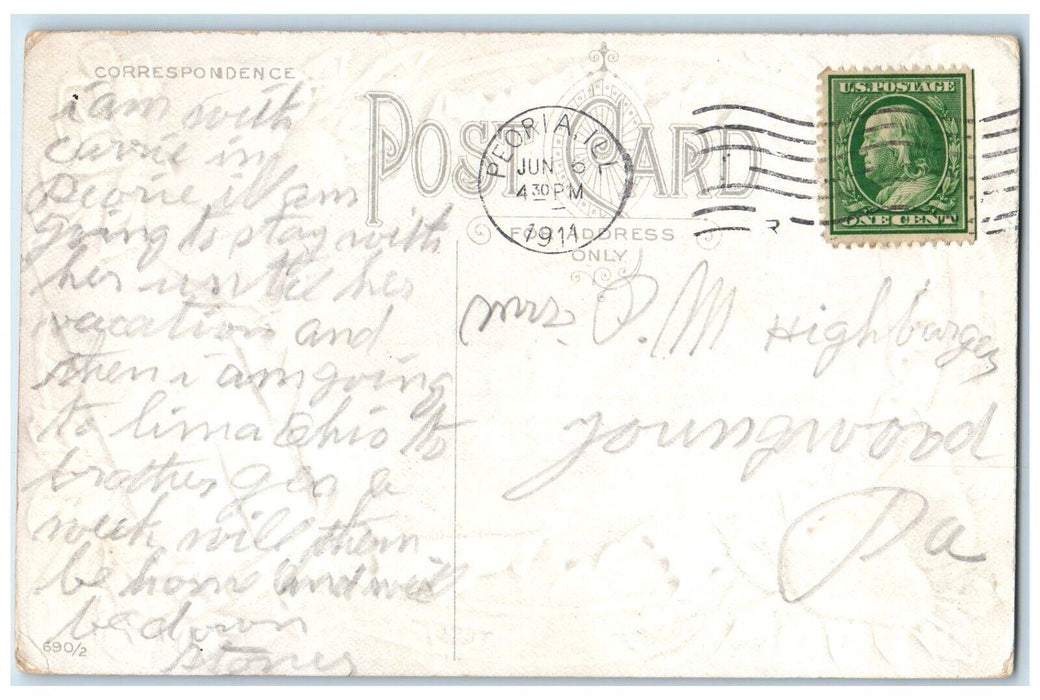 CORRESPONDENCE
i am with
carrie in
Peorie ill am
going to stay with
her until her
vacation and
then i am going
to lima Ohio to
brother geo a
week will then
be home and will
be down
690/2
POST CARD
FOR ADDRESS
ONLY
PEORIA, ILL.
JUN 6
4 30 PM
1911
U.S. POSTAGE
ONE CENT
Mrs. P. M Highbarger
youngwood
Pa